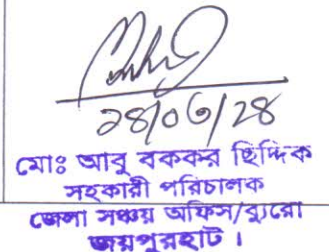 ২৪/০৬/২৪
মোঃ আবু বককর ছিদ্দিক
সহকারী পরিচালক
জেলা সঞ্চয় অফিস/ব্যুরো
জয়পুরহাট।